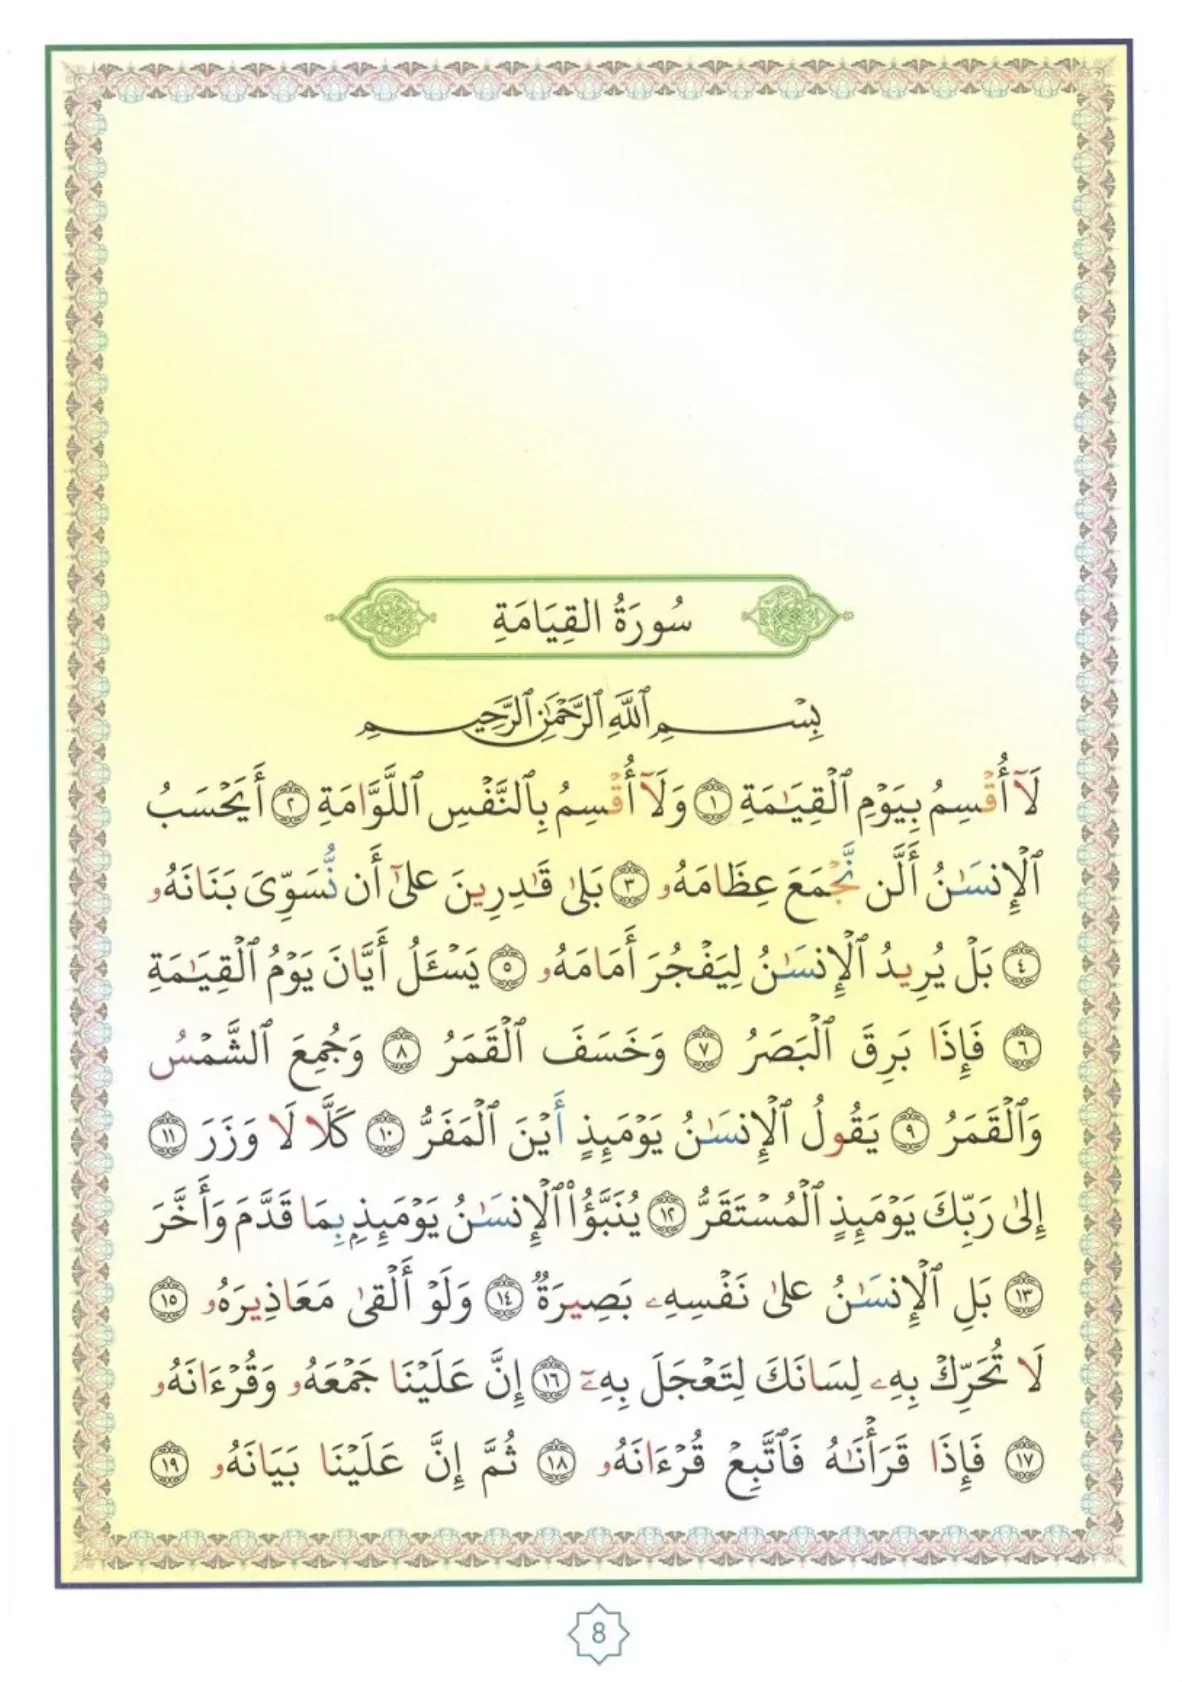 سُورَةُ القِيَامَةِ
بِسْمِ ٱللَّهِ ٱلرَّحْمَٰنِ ٱلرَّحِيمِ
لَآ أُقْسِمُ بِيَوْمِ ٱلْقِيَٰمَةِ ١ وَلَآ أُقْسِمُ بِٱلنَّفْسِ ٱللَّوَّامَةِ ٢ أَيَحْسَبُ
ٱلْإِنسَٰنُ أَلَّن نَّجْمَعَ عِظَامَهُۥ ٣ بَلَىٰ قَٰدِرِينَ عَلَىٰٓ أَن نُّسَوِّىَ بَنَانَهُۥ
٤ بَلْ يُرِيدُ ٱلْإِنسَٰنُ لِيَفْجُرَ أَمَامَهُۥ ٥ يَسْـَٔلُ أَيَّانَ يَوْمُ ٱلْقِيَٰمَةِ
٦ فَإِذَا بَرِقَ ٱلْبَصَرُ ٧ وَخَسَفَ ٱلْقَمَرُ ٨ وَجُمِعَ ٱلشَّمْسُ
وَٱلْقَمَرُ ٩ يَقُولُ ٱلْإِنسَٰنُ يَوْمَئِذٍ أَيْنَ ٱلْمَفَرُّ ١٠ كَلَّا لَا وَزَرَ ١١
إِلَىٰ رَبِّكَ يَوْمَئِذٍ ٱلْمُسْتَقَرُّ ١٢ يُنَبَّؤُا۟ ٱلْإِنسَٰنُ يَوْمَئِذٍۭ بِمَا قَدَّمَ وَأَخَّرَ
١٣ بَلِ ٱلْإِنسَٰنُ عَلَىٰ نَفْسِهِۦ بَصِيرَةٌ ١٤ وَلَوْ أَلْقَىٰ مَعَاذِيرَهُۥ ١٥
لَا تُحَرِّكْ بِهِۦ لِسَانَكَ لِتَعْجَلَ بِهِۦٓ ١٦ إِنَّ عَلَيْنَا جَمْعَهُۥ وَقُرْءَانَهُۥ
١٧ فَإِذَا قَرَأْنَٰهُ فَٱتَّبِعْ قُرْءَانَهُۥ ١٨ ثُمَّ إِنَّ عَلَيْنَا بَيَانَهُۥ ١٩
8